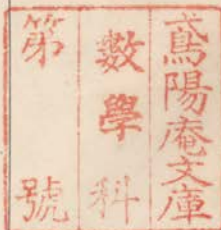 鳶陽庵文庫
數學科
第 號